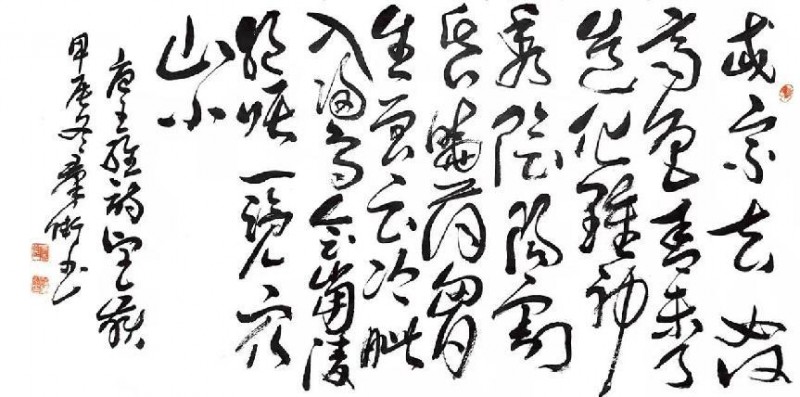 岱宗夫如何
齊魯青未了
造化鍾神
秀陰陽割
昏曉蕩胸
生曾云決眥
入歸鳥會當凌
絕頂一覽眾
山小
唐王維詩望嶽
甲辰冬書